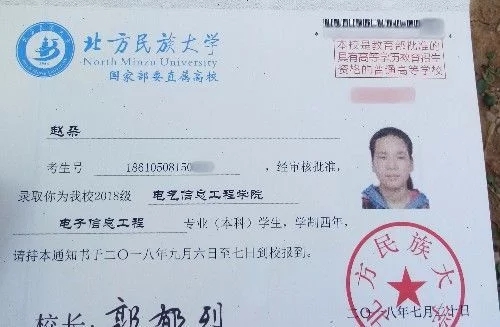 北方民族大学
North Minzu University
国家部委直属高校
本校是教育部批准的
具有高等学历教育招生
资格的普通高等学校
赵桑
考生号 18610508150 ，经审核批准，
录取你为我校2018级 电气信息工程学院
电子信息工程 专业（本科）学生，学制四年，
请持本通知书于二〇一八年九月六日至七日到校报到。
北方民族大
校长
二〇一八年七月 十日